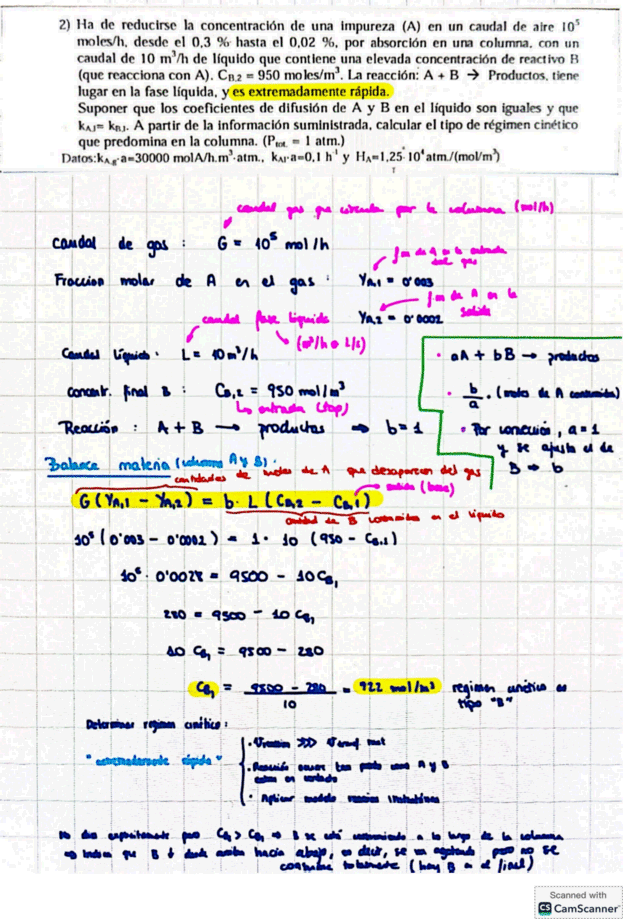 2) Ha de reducirse la concentración de una impureza (A) en un caudal de aire 10⁵
moles/h, desde el 0,3 % hasta el 0,02 %, por absorción en una columna, con un
caudal de 10 m³/h de líquido que contiene una elevada concentración de reactivo B
(que reacciona con A). C_B,2 = 950 moles/m³. La reacción: A + B → Productos, tiene
lugar en la fase líquida, y es extremadamente rápida.
Suponer que los coeficientes de difusión de A y B en el líquido son iguales y que
k_A,l= k_B,l. A partir de la información suministrada, calcular el tipo de régimen cinético
que predomina en la columna. (P_tot. = 1 atm.)
Datos:k_A,g·a=30000 molA/h.m³·atm., k_Al·a=0,1 h⁻¹ y H_A=1,25 10⁴atm./(mol/m³)
caudal gas que circula por la columna (mol/h)
caudal de gas : G = 10⁵ mol/h
fm de A a la entrada del gas
Fraccion molar de A en el gas : Y_A,1 = 0'003
fm de A en la salida
Y_A,2 = 0'0002
caudal fase líquida (m³/h o L/s)
Caudal líquido: L = 10 m³/h
concentr. final B : C_B,2 = 950 mol/m³
Lo entrada (top)
Reacción : A + B → productos ⇒ b = 1
• aA + bB → productos
• b/a · (moles de A consumidos)
• Por convención, a = 1
y se ajusta el de
B ⇒ b
Balance materia (columna A y B):
cantidades de moles de A que desaparecen del gas
salida (base)
G (Y_A,1 − Y_A,2) = b · L (C_B,2 − C_B,1)
cantidad de B consumidos en el líquido
10⁵ (0'003 − 0'0002) = 1 · 10 (950 − C_B,1)
10⁵ · 0'0028 = 9500 − 10 C_B1
280 = 9500 − 10 C_B1
10 C_B1 = 9500 − 280
C_B1 = (9500 − 280)/10 = 922 mol/m³ regimen cinético es
tipo "B"
Determinar regimen cinético :
"extremadamente rápida"
• Vreaccion >>> Vtransf mat
• Reacción ocurre tan pronto como A y B
entran en contacto
• Aplicar modelo reaccion instantánea
No dice explicitamente pero C_B2 > C_B1 ⇒ B se está consumiendo a lo largo de la columna
⇒ indica que B ↓ desde arriba hacia abajo, es decir, se va agotando pero no se
consume totalmente (hay B a el final)
Scanned with
CS CamScanner